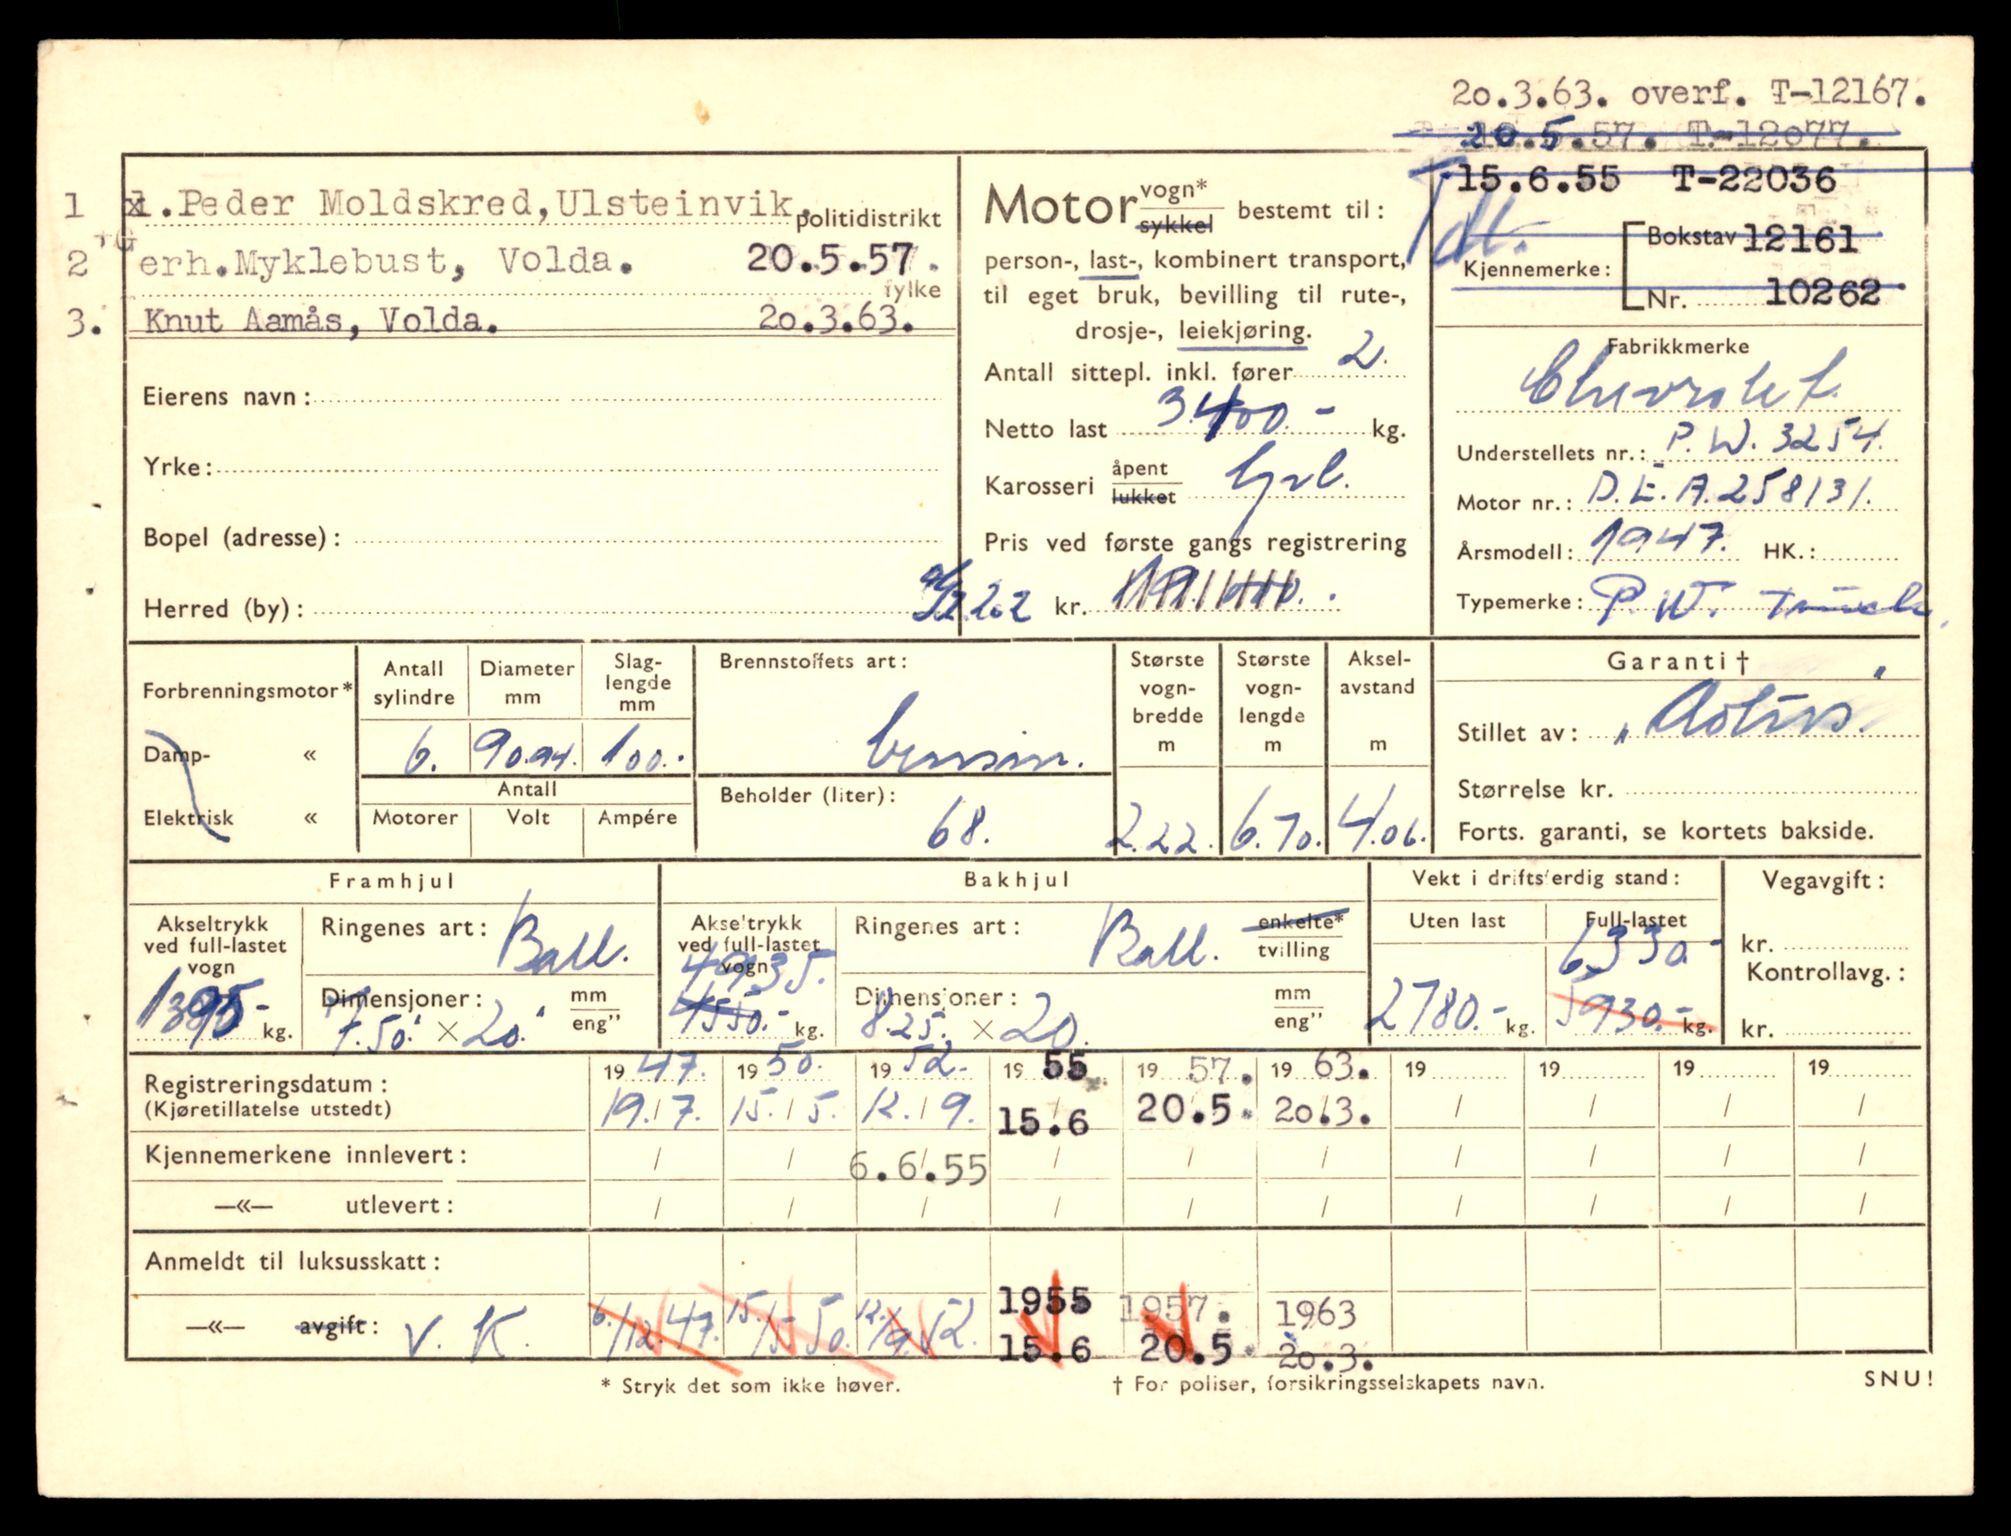 20.3.63. overf. T-12167.
20.5.57. T-12077.
15.6.55 T-22036
1 1.Peder Moldskred,Ulsteinvik. politidistrikt
2 erh. Myklebust, Volda. 20.5.57. fylke
3. Knut Aamås, Volda. 20.3.63.
Eierens navn:
Yrke:
Bopel (adresse):
Herred (by):
Motor vogn* sykkel bestemt til:
person-, last-, kombinert transport,
til eget bruk, bevilling til rute-,
drosje-, leiekjøring.
Antall sittepl. inkl. fører 2.
Netto last 3400.- kg.
Karosseri åpent lukket
Pris ved første gangs registrering
kr.
Bokstav 12161
Kjennemerke:
Nr. 10262
Fabrikkmerke
Chevrolet.
Understellets nr.: P.W. 3254.
Motor nr.: D.E.A. 258131.
Årsmodell: 1947. HK.:
Typemerke: P.W. Truck
Forbrenningsmotor*
Damp- «
Elektrisk «
Antall sylindre 6.
Diameter mm 90.94.
Slag-lengde mm 100.
Antall
Motorer Volt Ampére
Brennstoffets art: bensin.
Beholder (liter): 68.
Største vogn-bredde m 2.22.
Største vogn-lengde m 6.70.
Aksel-avstand m 4.06.
Garanti †
Stillet av: „Aotus"
Størrelse kr.
Forts. garanti, se kortets bakside.
Framhjul
Akseltrykk ved full-lastet vogn 1395.- kg.
Ringenes art: Ball.
Dimensjoner: 7.50" × 20" mm eng"
Bakhjul
Akseltrykk ved full-lastet vogn 4935. 4550.- kg.
Ringenes art: Ball. enkelte* tvilling
Dimensjoner: 8.25. × 20. mm eng"
Vekt i driftsferdig stand:
Uten last 2780.- kg.
Full-lastet 6330.- 5930.- kg.
Vegavgift:
kr.
Kontrollavg.:
kr.
Registreringsdatum: 1947. 1950. 1952. 1955 1957. 1963. 19 19 19 19
(Kjøretillatelse utstedt) 19./7. 15./5. 12./9. 15.6 20.5. 20.3. / / / /
Kjennemerkene innlevert: / / 6.6.55 / / / / / / /
—«— utlevert: / / / / / / / / / /
Anmeldt til luksusskatt:
—«— avgift: V. K. 6./12.47. 15./5 50. 12./9.52. 1955 15.6 1957. 20.5. 1963 20.3.
* Stryk det som ikke høver.
† For poliser, forsikringsselskapets navn.
SNU!